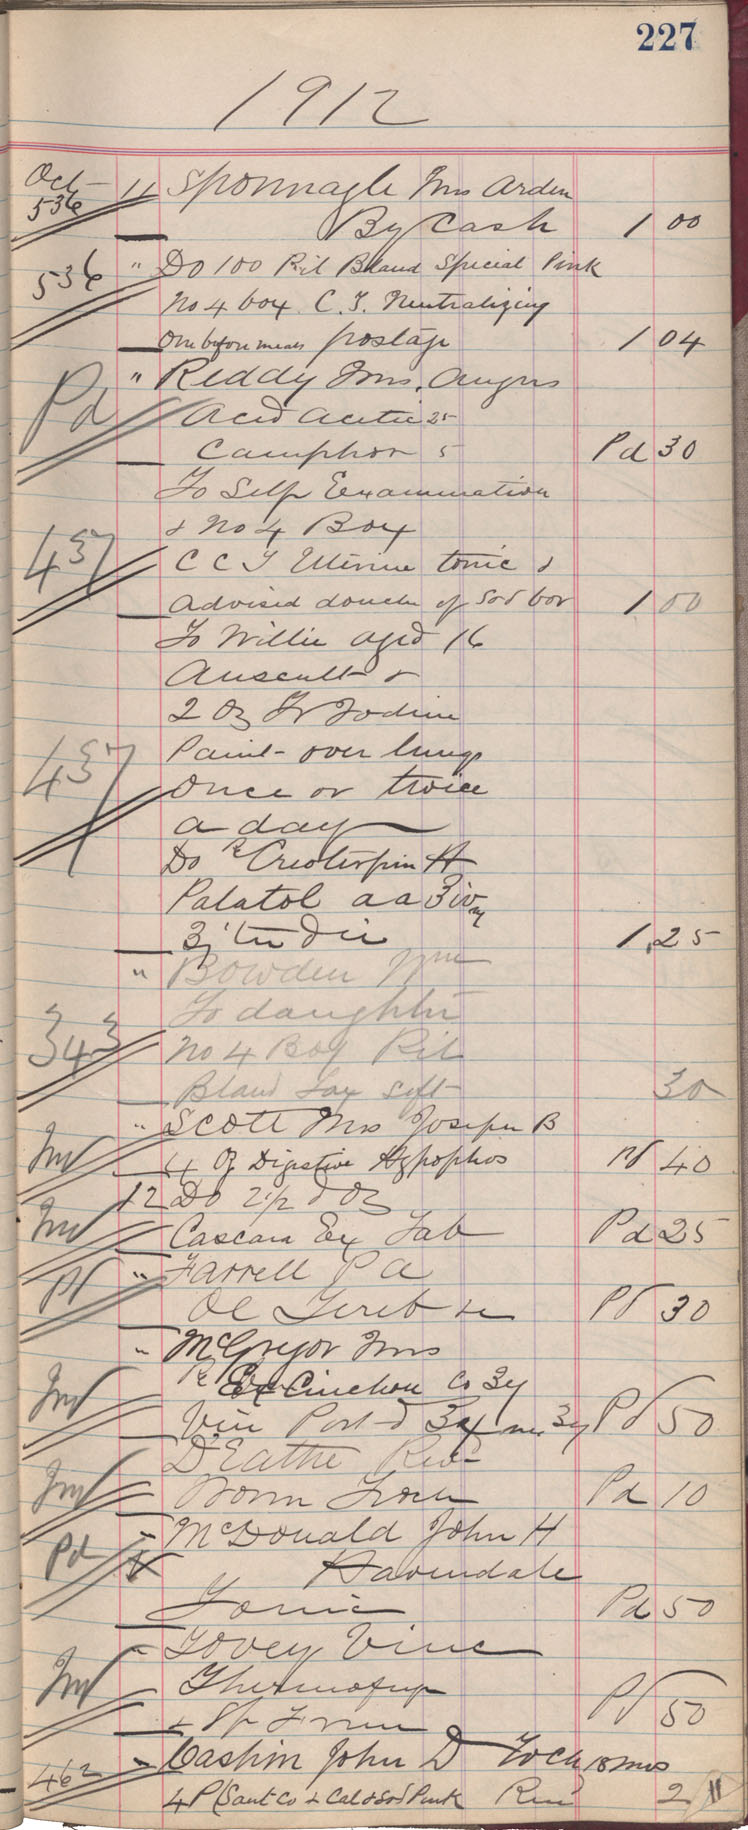 227
1912
Oct 11 Sponnagle Mrs Arden
536
By Cash 1 00
536 " Do 100 Pil Bland Special Pink
No 4 box C.T. Neutralizing
One before meals postage 1 04
" Reddy Mrs. Angus
Pd Acid Acetic 25
Camphor 5 Pd 30
To Self Examination
& No 4 Box
437 C C T Uterine tonic &
advised douche of Sod bor 1 00
To Willie aged 16
Auscult &
2 Oz Tr Iodine
437 Paint over lungs
once or twice
a day
Do Rx Creoterpin
Palatol aa ℥iv
ʒj ter die 1.25
" Bowden Wm
To daughter
343 No 4 Box Pil
Bland Lax Soft 30
" Scott Mrs Joseph B
Inv 4 Oz Digestive Hypophos Pd 40
12 Do 2 1/2 d Oz
Inv Cascara Ex Tab Pd 25
" Farrell P A
Pd Ol Tereb Pd 30
" McGregor Mrs
Rx Ext Cinchon Co
Inv Vin Port Pd 50
D'Eathe Rev
Inv Worm Pd 10
" McDonald John H
Pd Havendale
Tonic Pd 50
" Tovey Vine
Inv Thermofuge
Pd 50
" Cashin John D 18 mos
462 4 P Sant Co & Cal & Sod Pink 2